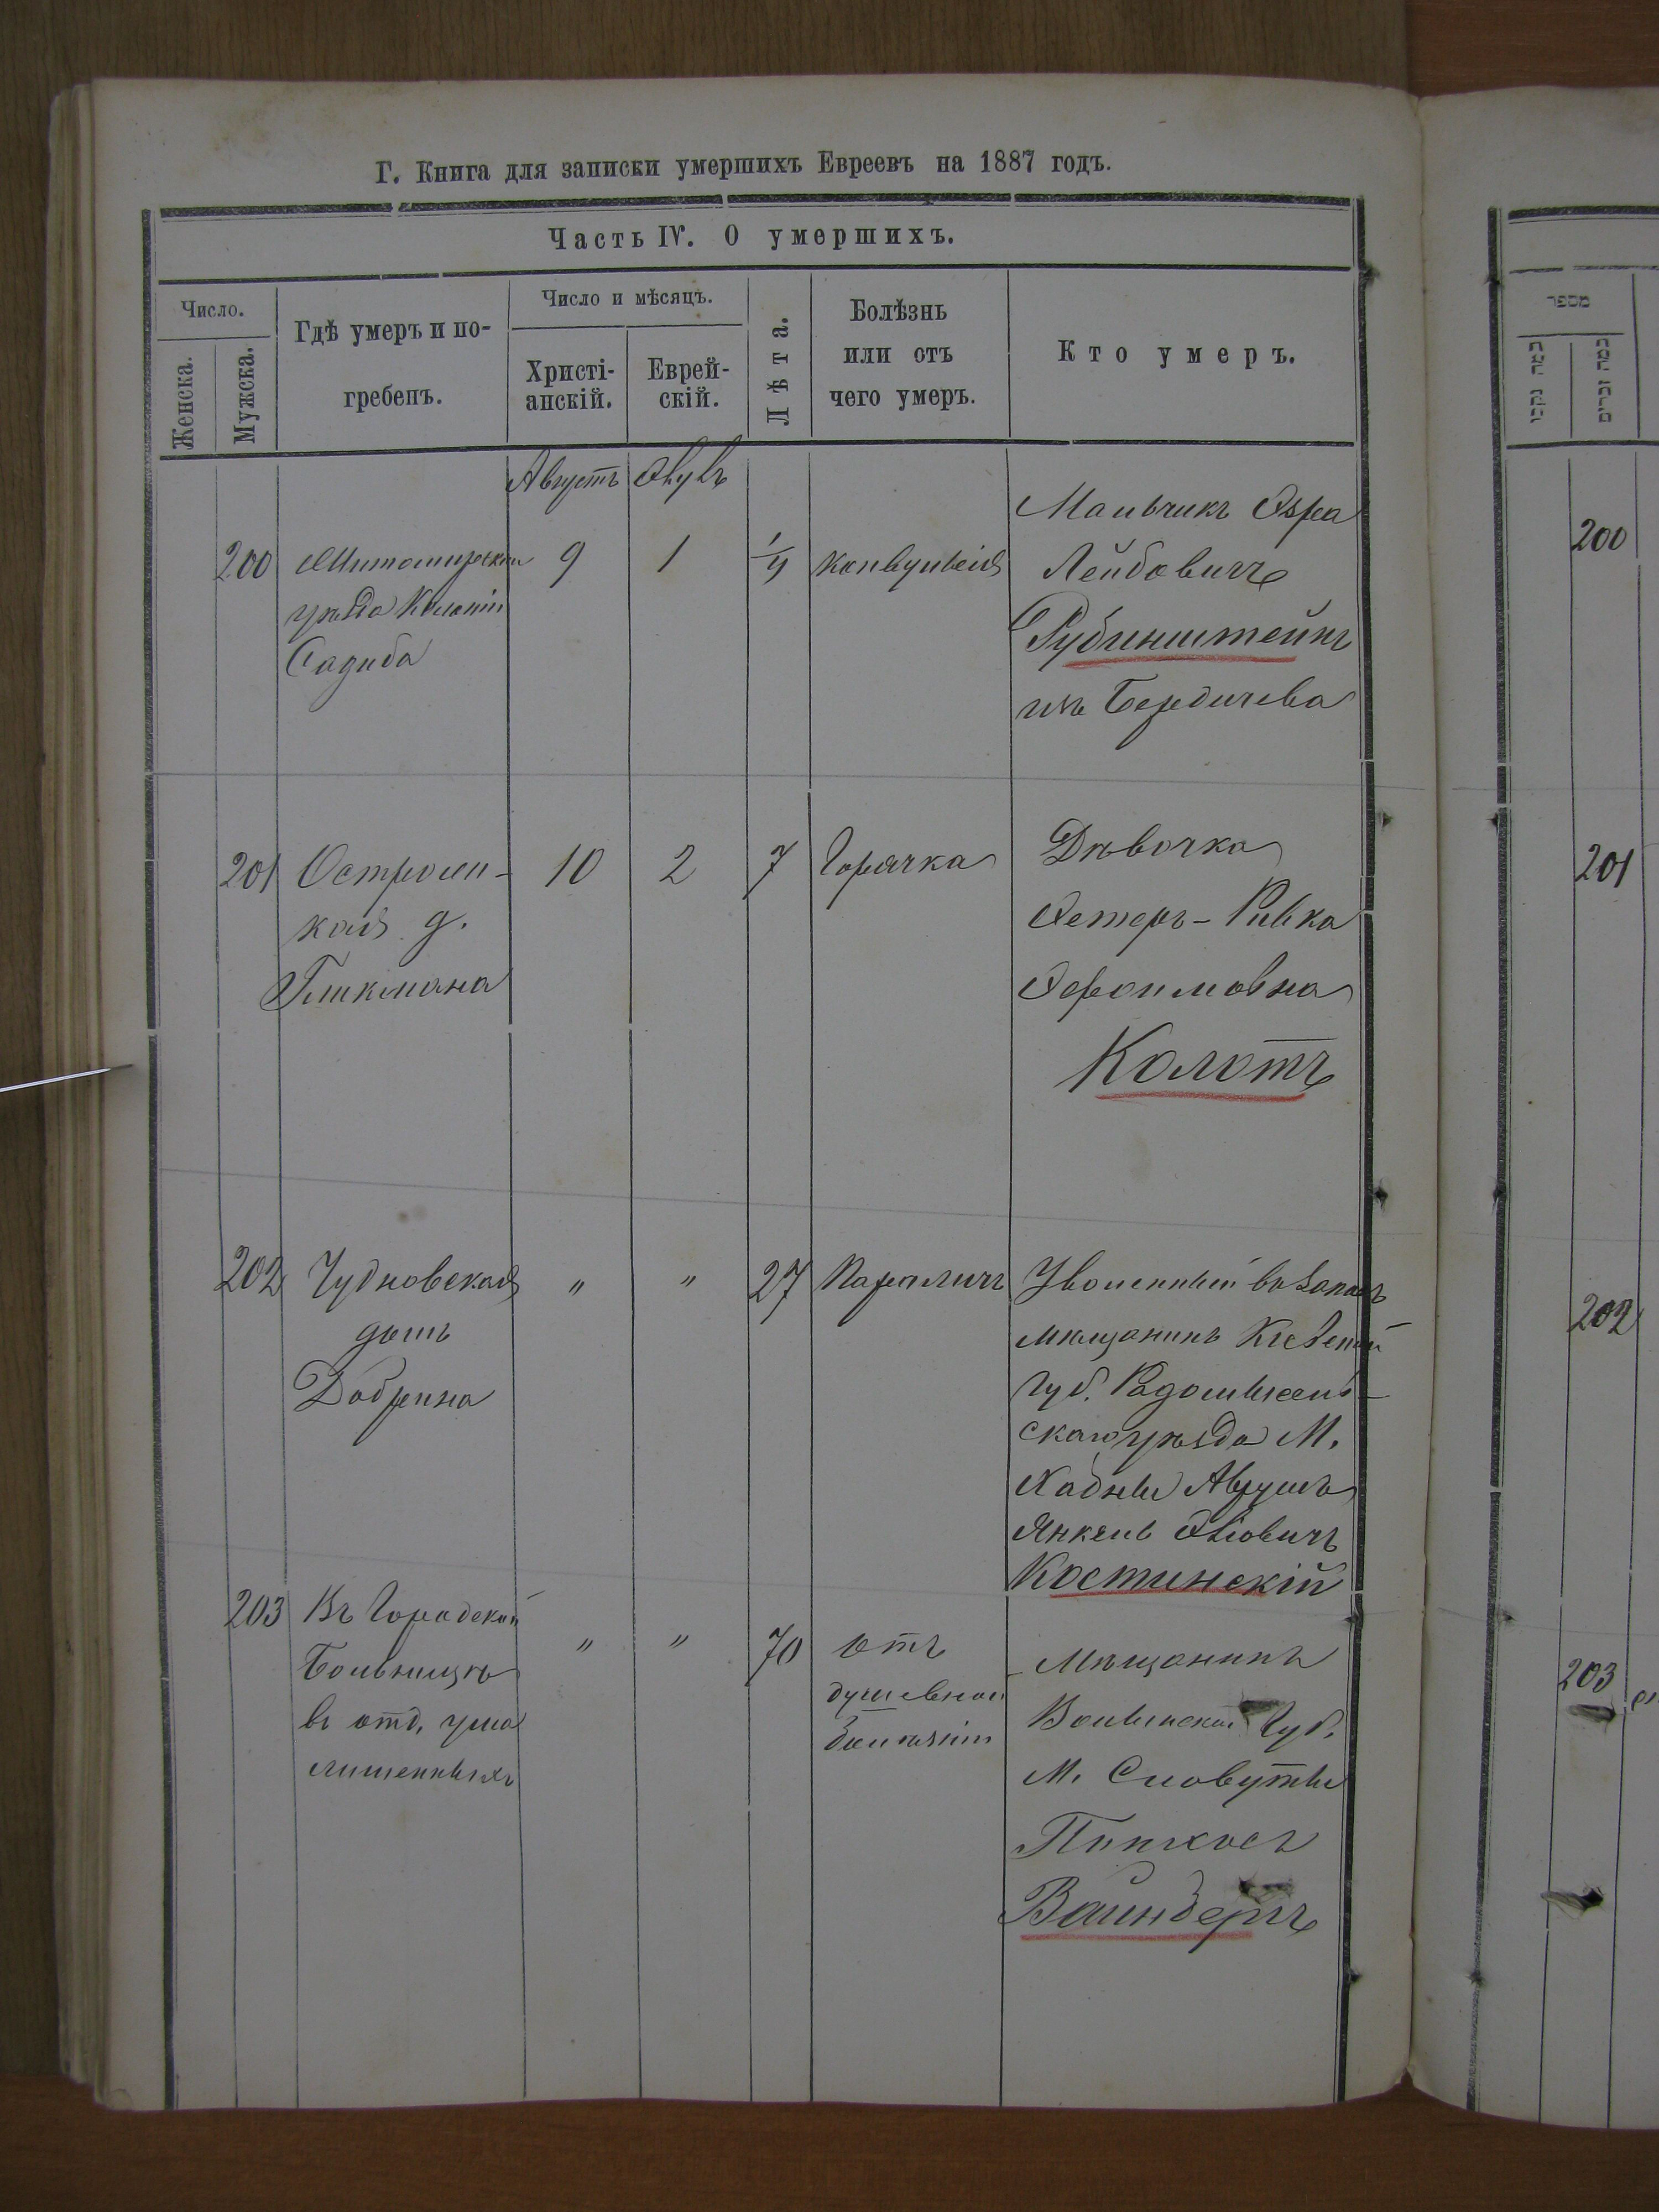 Г. Книга для записки умершихъ Евреевъ на 1887 годъ.
Часть IV. О умершихъ.
Число.
Женска.
Мужска.
Гдѣ умеръ и по-
гребенъ.
Число и мѣсяцъ.
Христі-
анскій.
Еврей-
скій.
Лѣта.
Болѣзнь
или отъ
чего умеръ.
Кто умеръ.
Августъ
200
Житомирскаго
уѣзда Колоніи
Садиба
9
1
Конвульсія
Мальчикъ
Лейбовичъ
Рубинштейнъ
изъ Бердичева
201
10
2
7
Горячка
Дѣвочка
Эстеръ-Ривка
Эфроимовна
Колотъ
202
Чудновская
домъ
Добрина
"
"
27
Параличъ
Уволенный въ запасъ
мѣщанинъ Кіевской
Губ. Радомысль-
скаго уѣзда М.
Аврумъ
Янкель
Костинскій
203
Въ Городской
Больницѣ
въ отд. ума
лишенныхъ
"
"
70
отъ
душевной
Мѣщанинъ
Волынской Губ.
М. Славуты
Пинхасъ
Вайнбергъ
מספר
200
201
202
203